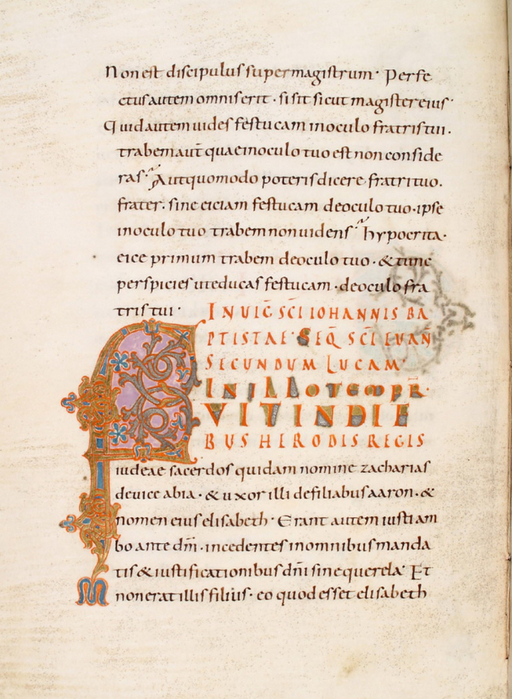 Non est discipulus super magistrum · Perfe
ctus autem omnis erit · si sit sicut magister eius ·
Quid autem uides festucam in oculo fratris tui ·
trabem aut̄ quae in oculo tuo est non conside
ras · Aut quomodo poteris dicere fratri tuo ·
frater · sine eiciam festucam de oculo tuo · ipse
in oculo tuo trabem non uidens · Hypocrita ·
eice primum trabem de oculo tuo · & tunc
perspicies ut educas festucam · de oculo fra
tris tui ·
IN UIG̅ S̅C̅I IOHANNIS BA
PTISTAE · SEQ̅ S̅C̅I EUAN̅
SECUNDUM LUCAM
IN ILLO TEMPR̅ ·
FVIT IN DIE
BUS HERODIS REGIS
iudeae sacerdos quidam nomine zacharias
de uice abia · & uxor illi de filiabus aaron · &
nomen eius elisabeth · Erant autem iusti am
bo ante dm̅ · incedentes in omnibus manda
tis & iustificationibus dn̅i sine querela · Et
non erat illis filius · eo quod esset elisabeth